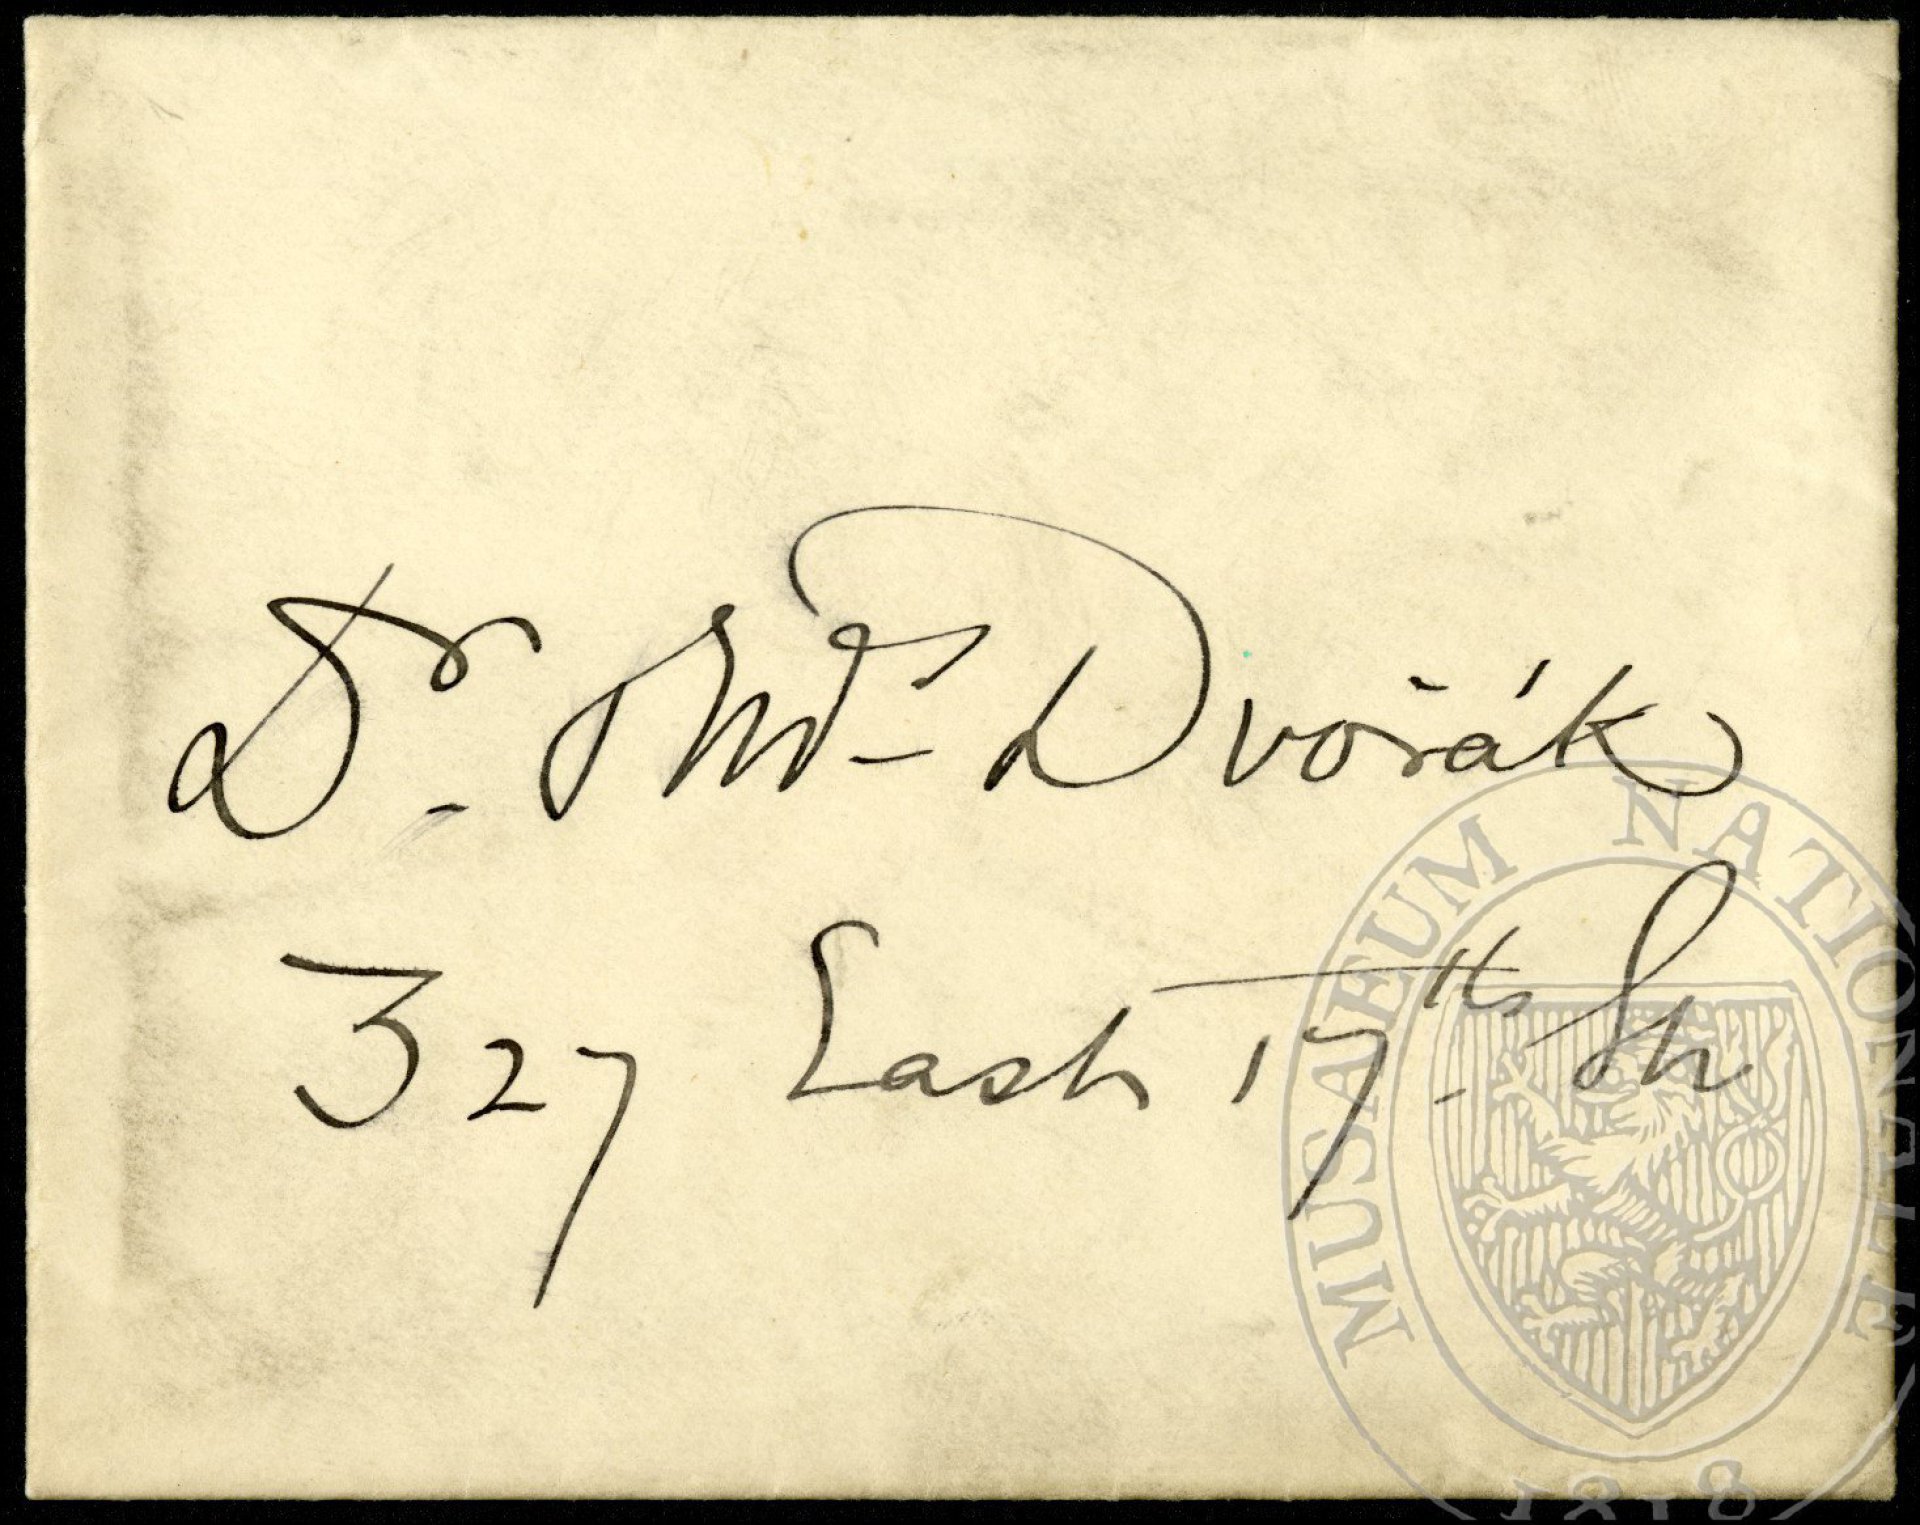 Dr. Dvořák
327 East 17th. St
MUSAEUM NATIONALE
1818